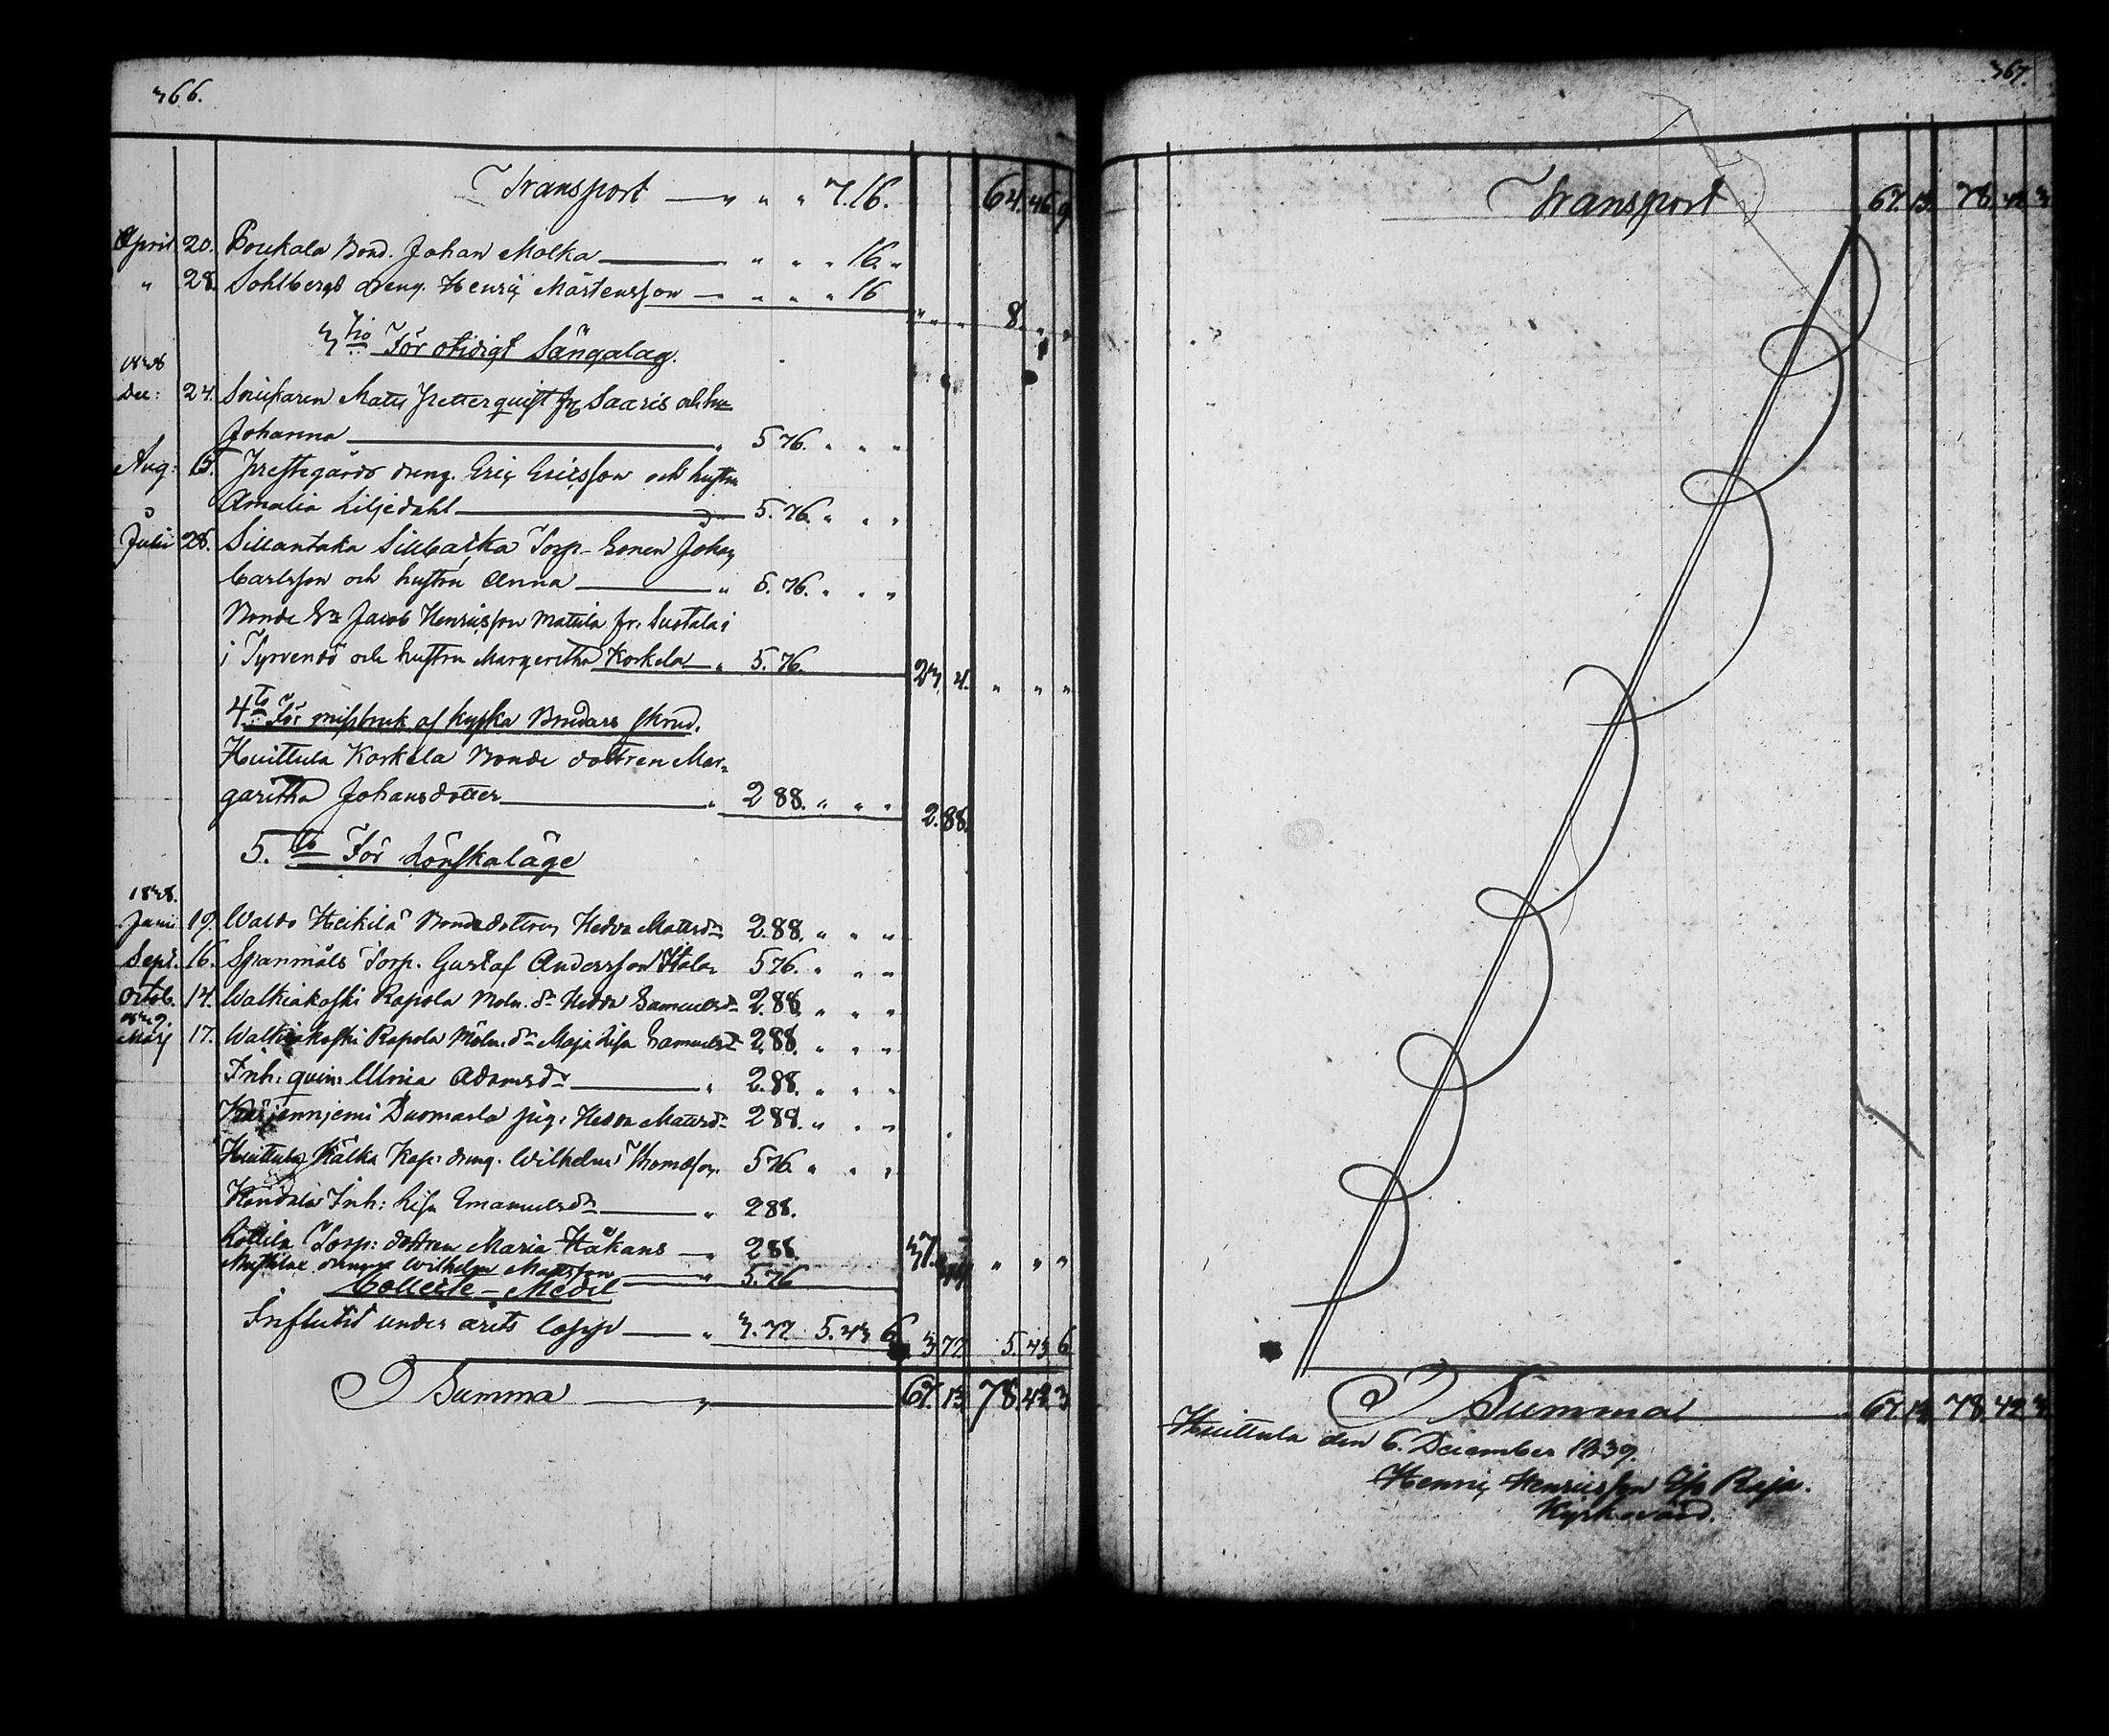 366.
Transport — " " " 7.16. 64. 46. 9
April 20. Poukala Bond. Johan Molka — " " " 16. "
" 28. Sohlbergs dreng. Henric Mårtensson — " " " 16
" " " 8. " "
3tio För otidigt Sängalag.
1838
Dec: 24. Snickaren Matts Zetterquist fr. Saaris och hu
Johanna — " 5 76. " " "
Aug: 15. Prestegårds dreng. Eric Ericsson och hustru
Amalia Liljedahl — 5. 76. " " "
Julii 28. Sillantaka Torp-Sonen Johan
Carlsson och hustru Anna — " 5. 76. " " "
Bonde Sn Jacob Henricsson Mattila fr. Suotala i
i Tyrvendö och hustru Margeritha Korkela — " 5. 76.
23. 4. " " "
4to För missbruk af kyska Brudars skrud.
Huittula Korkela Bonde dottren Mar-
garitha Johansdotter — " 2 88. " " "
2. 88.
5.to För Lönskaläge
1838.
Junii 19. Waldo Heikilä Bondedottren Hedva Mattsdr 2.88. " " "
Sept. 16. Spanmåls Torp. Gustaf Andersson 5 76. " " "
Octob. 14. Walkiakoski Rapola Moln. dr Hedda Samuelsdr 2.88. " " "
1839.
Marj 17. Walkiakoski Rapola Möln. dr Maja Lisa Samuelsdr 2.88. " " "
Inh: quin: Ulrica Adamsdr — " 2.88. " " "
Duomarla pig: Hedda Mattsdr 2 88. " " "
Huittula Kälka Kap: dreng. Wilhelm Thomasson 5 76 " " "
Inh: Lisa Emanuelsdr — " 2 88.
Lottila Torp: dottren Maria Håkans — " 2 88.
drengen Wilhelm Mattsson — " 5. 76
37. " " "
Collecte-Medel
Influtit under årets lopp — " 3. 77. 5. 43 6 3 77. 5. 43 6
Summa — " — 67. 13. 78. 42. 3
367.
Transport 67. 13. 78. 42. 3
Summa 67. 13. 78. 42. 3
Huittula den 6. December 1839.
Henric Henricsson Raja.
Kyrkovärd.